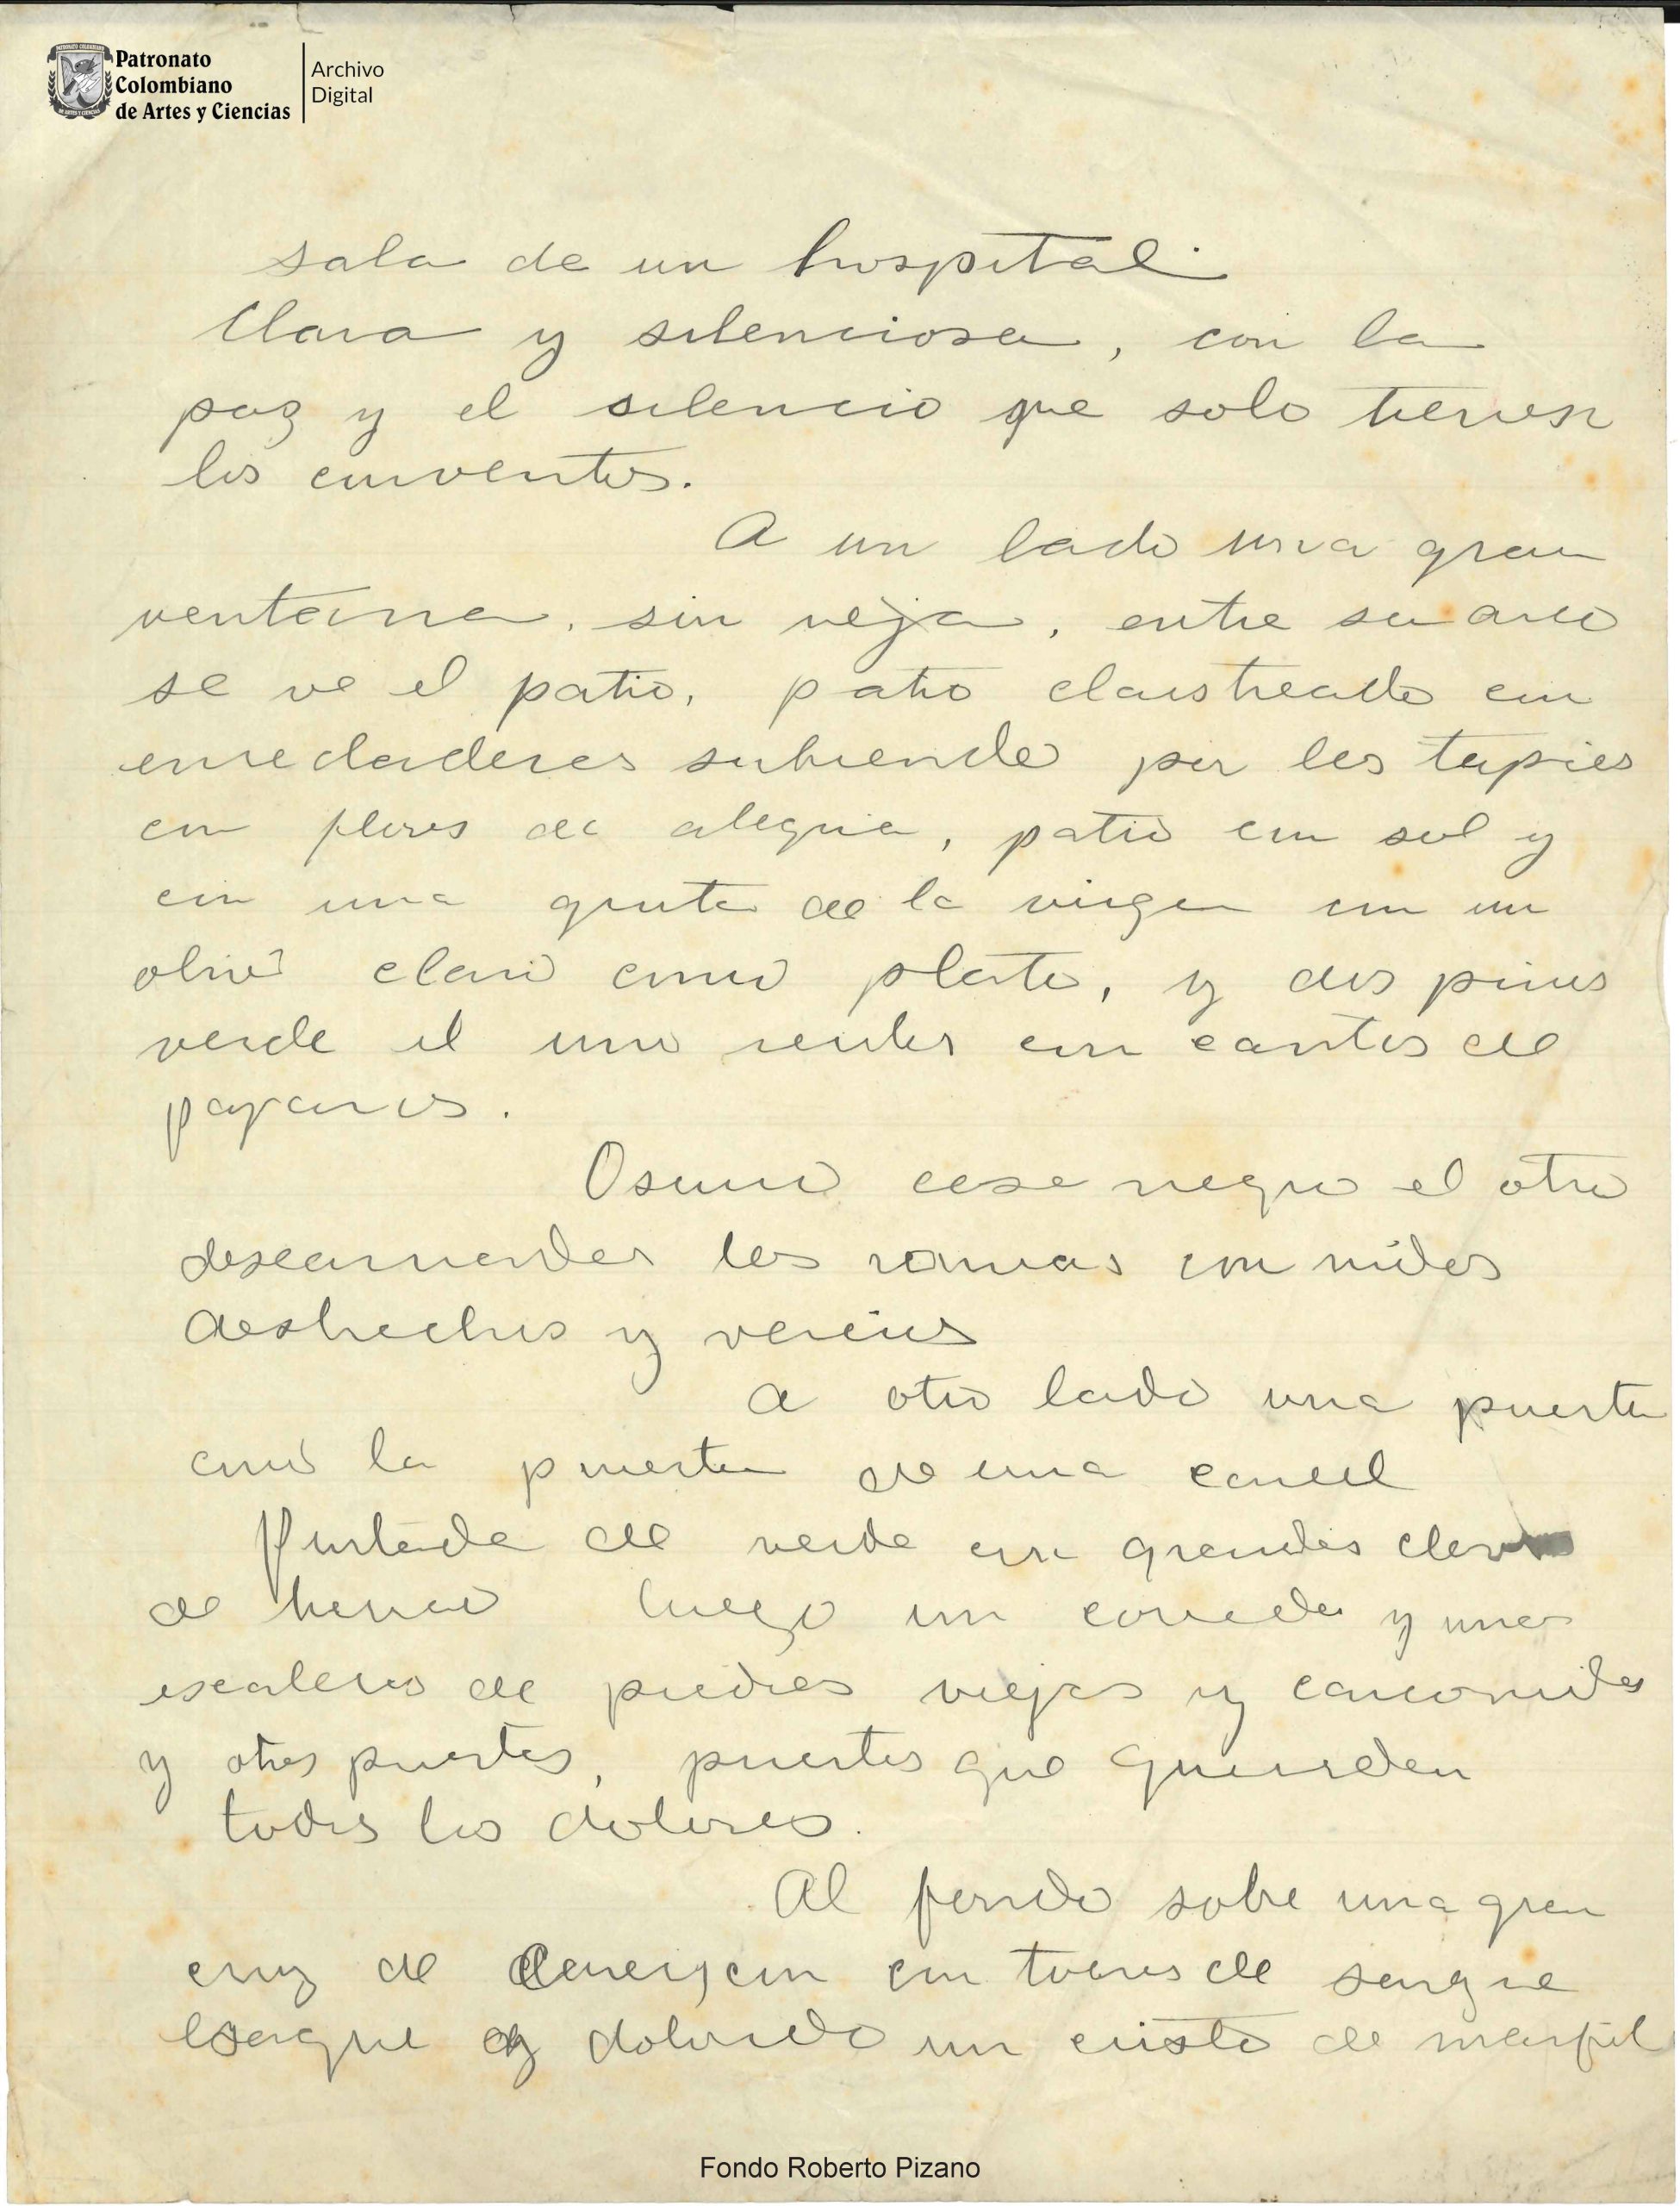 Patronato
Colombiano
de Artes y Ciencias
Archivo
Digital
sala de un hospital.
Clara y silenciosa, con la
paz y el silencio que solo tienen
los conventos.
A un lado una gran
ventana, sin reja, entre su arco
se ve el patio, patio claustreado con
enredaderas subiendo por las tapias
con flores de alegria, patio con sol y
con una gruta de la virgen con un
olivo claro como plata, y dos pinos
verde el uno con cantos de
pajaros.
Oscuro casi negro el otro
descarnadas las ramas con nidos
deshechos y vacios
a otro lado una puerta
como la puerta de una carcel
Pintada de verde con grandes clavos
de hierro luego un corredor y unas
escaleras de piedras viejas y carcomidas
y otras puertas, puertas que guardan
todos los dolores.
Al fondo sobre una gran
cruz de con toques de sangre
exangue y dolorido un cristo de marfil
Fondo Roberto Pizano